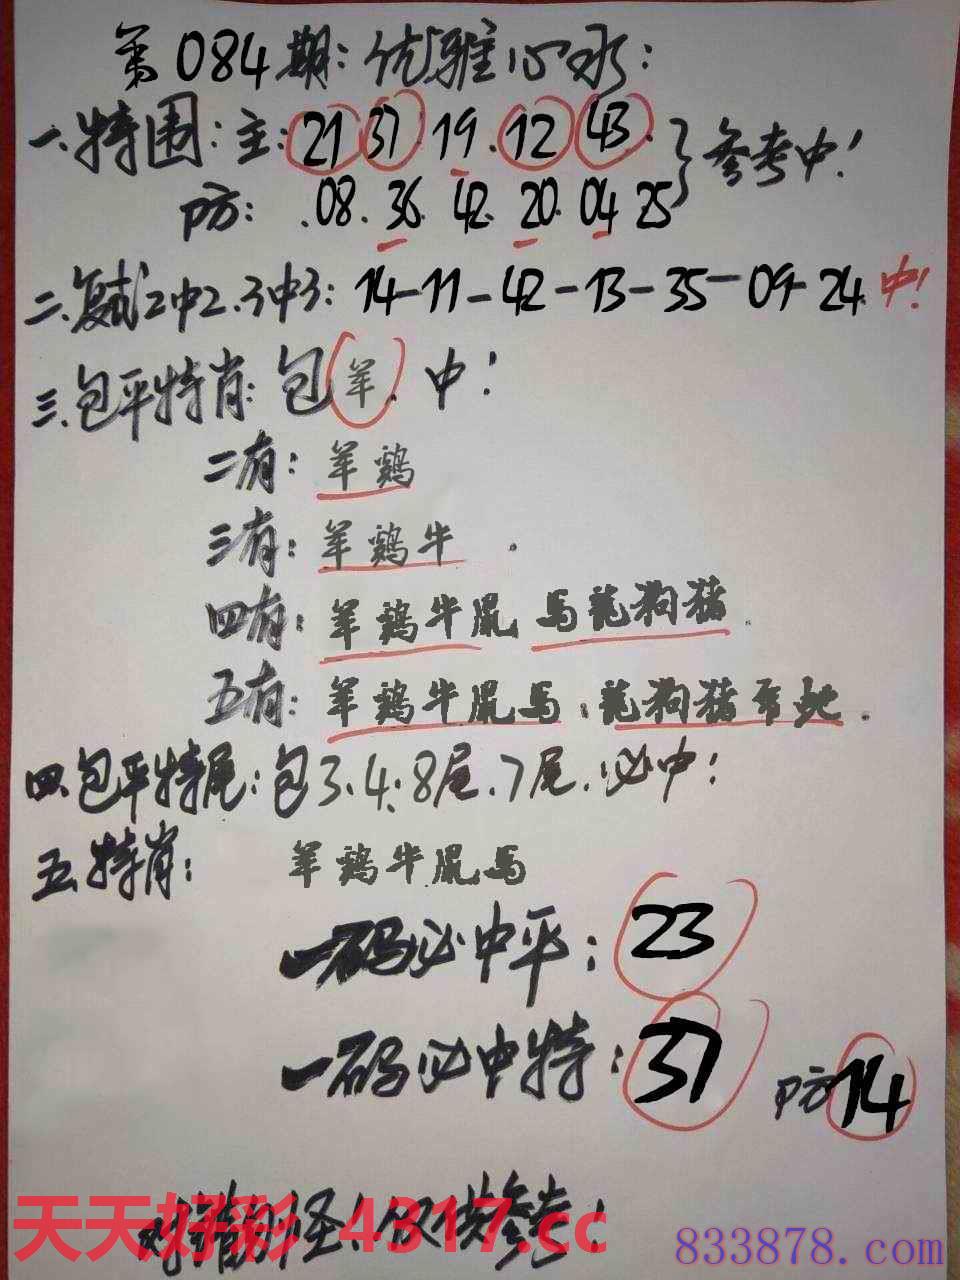 第084期：优雅心水：
一.特围：主：21 37.19.12 43. 参考中！
防：.08.36.42.20.04 25
二.复试2中2.3中3：14-11-42-13-35-09-24 中！
三.包平特肖：包羊.中！
二有：羊鸡
三有：羊鸡牛.
四有：羊鸡牛鼠 马龍狗猪.
五有：羊鸡牛鼠马.龍狗猪 蛇.
四.包平特尾：包3.4.8尾.7尾.必中！
五.特肖：羊鸡牛鼠马
一码必中平：23
一码必中特：37 防14
对错勿怪！仅供参考！
天天好彩 4317.cc
833878.com